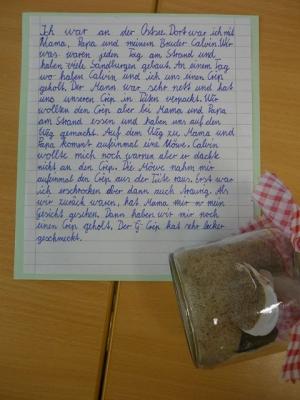 Ich war an der Ostsee. Dort war ich mit
Mama, Papa und meinem Bruder Calvin. Wir
was waren jeden Tag am Strand und
haben viele Sandburgen gebaut. An einem Tag
wo haben Calvin und ich uns einen Crêp
geholt. Der Mann war sehr nett und hat
uns unseren Crêp in Tüten verpackt. Wir
wollten den Crêp aber bei Mama und Papa
am Strand essen und haben uns auf den
Weg gemacht. Auf dem Weg zu Mama und
Papa kommt aufeinmal eine Möwe. Calvin
wollte mich noch warnen aber er dachte
nicht an den Crêp. Die Möwe nahm mir
aufeinmal den Crêp aus der Tüte raus. Erst war
ich erschrocken aber dann auch traurig. Als
wir zurück waren, hat Mama mir in mein
Gesicht gesehen. Dann haben wir mir noch
einen Crêp geholt. Der Crêp hat sehr lecker
geschmeckt.